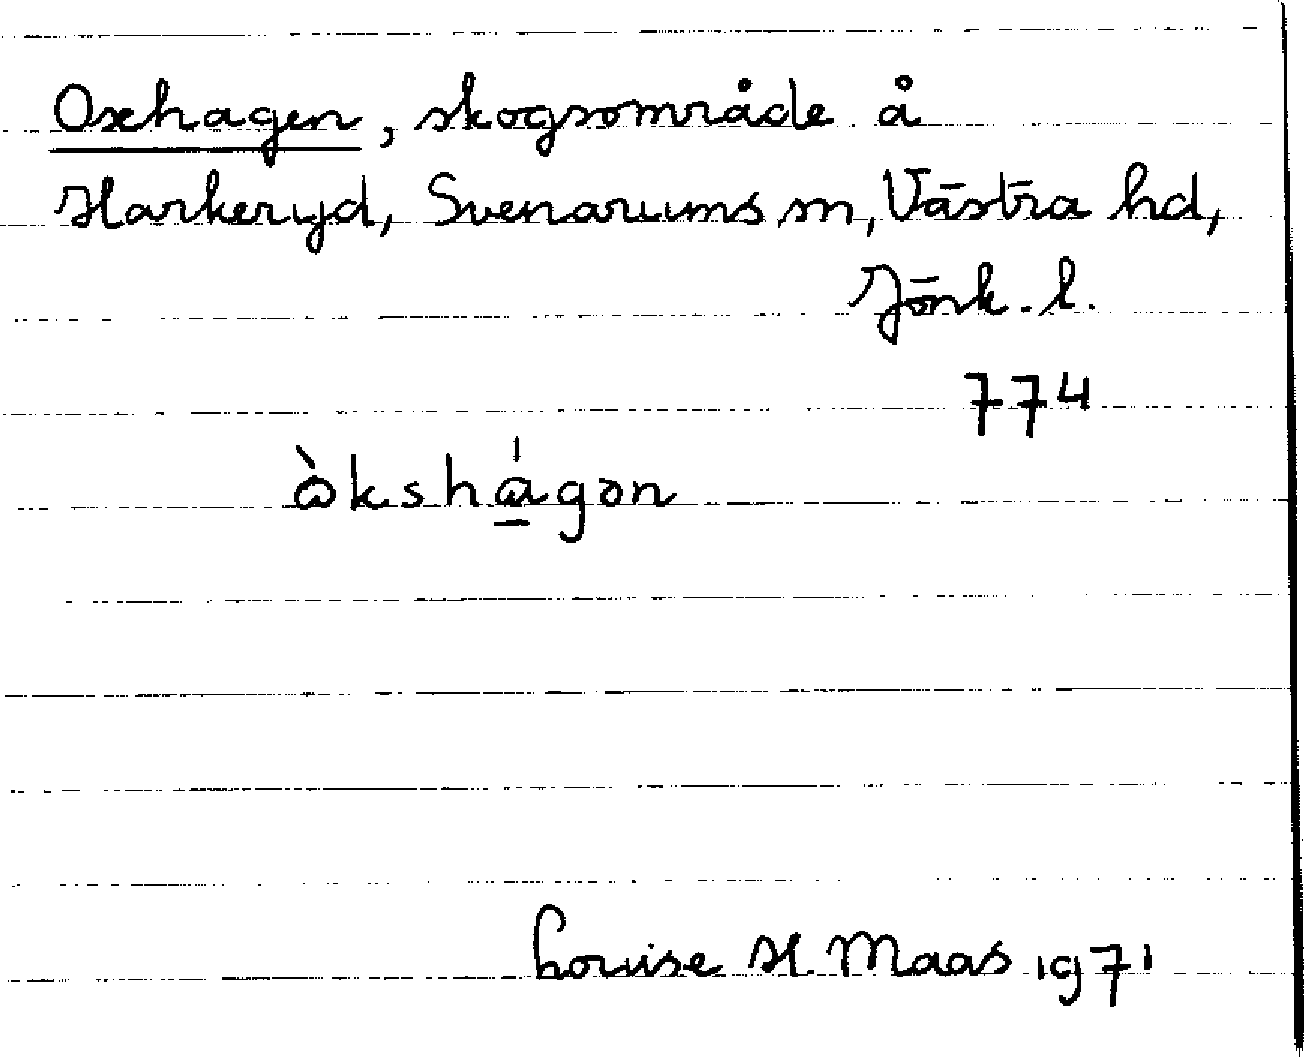 Oxhagen, skogsområde å
Harkeryd, Svenarums sn, Västra hd,
Jönk. l.
774
òkshágən
Louise H Maas 1971